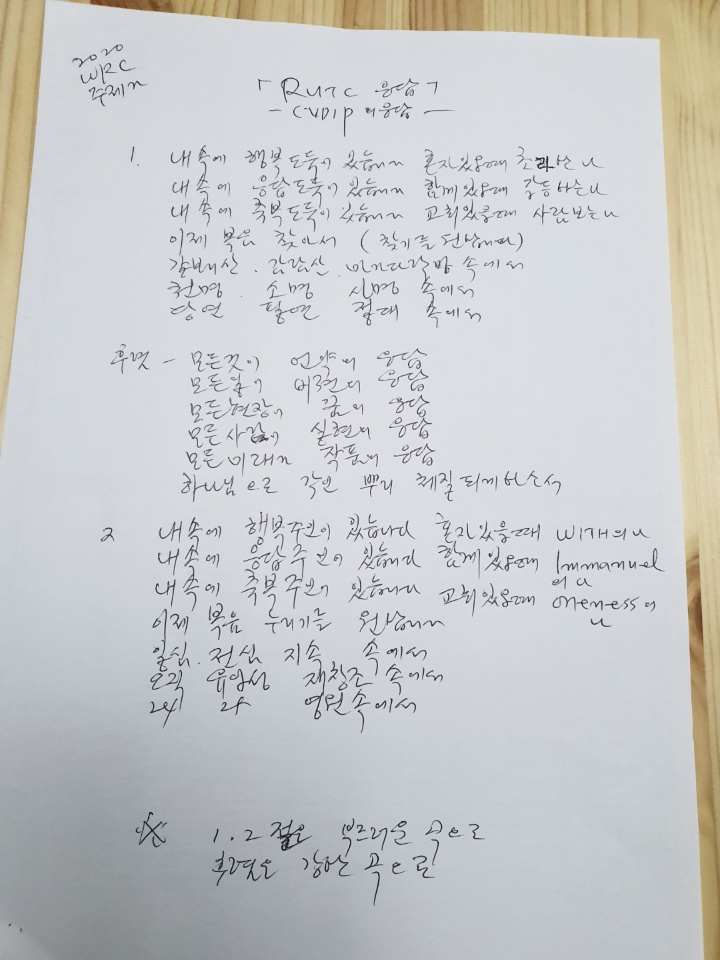 2020
WRC
주제가
「RUTC 응답」
- CVDIP의 응답 -
1. 내 속에 행복도둑이 있습니다 혼자있을때 초라한 나
내 속에 응답도둑이 있습니다 함께있을때 갈등하는 나
내 속에 축복도둑이 있습니다 교회있을때 사람보는 나
이제 복음 찾아서 (찾기를 원합니다)
갈보리산. 감람산. 마가다락방 속에서
천명. 소명 사명 속에서
당연 필연 절대 속에서
후렴 - 모든것이 언약의 응답
모든일이 비전의 응답
모든현장이 꿈의 응답
모든사람이 실현의 응답
모든미래가 작품의 응답
하나님으로 각인 뿌리 체질되게하소서
2 내 속에 행복주인이 있습니다 혼자있을때 WITH의 나
내 속에 응답주인이 있습니다 함께있을때 Immanuel의 나
내 속에 축복주인이 있습니다 교회있을때 oneness의 나
이제 복음 누리기를 원합니다
일심. 전심 지속 속에서
오직 유일성 재창조 속에서
24 25 영원속에서
※ 1. 2절은 부드러운 곡으로
후렴은 강한 곡으로